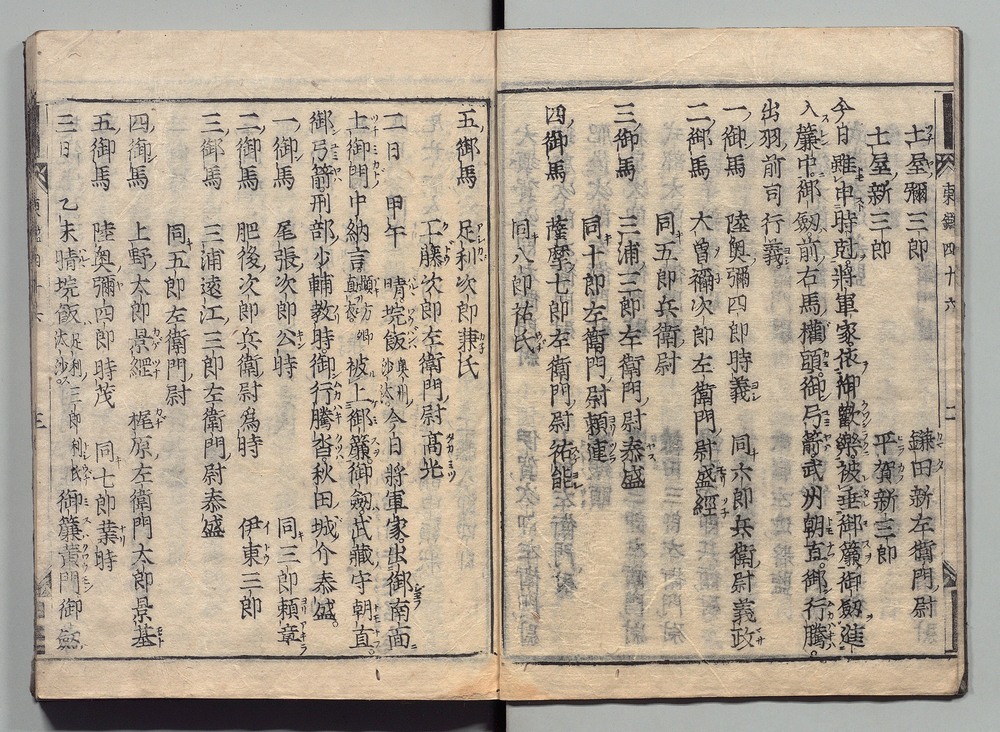 土屋彌三郎 鎌田新左衛門尉
土屋新三郎 平賀新三郎
今日雖申時尅將軍家依御歡樂被垂御簾御劔進
入簾中御劔前右馬權頭御弓箭武州朝直御行騰
出羽前司行義
一御馬 陸奥彌四郎時義 同六郎兵衛尉義政
二御馬 大曽禰次郎左衛門尉盛經
同五郎兵衛尉
三御馬 三浦三郎左衛門尉泰盛
同十郎左衛門尉頼連
四御馬 薩摩七郎左衛門尉祐能
同八郎祐氏
五御馬 足利次郎兼氏
工藤次郎左衛門尉高光
二日 甲午 晴垸飯奥州沙汰今日將軍家出御南面
上御門中納言顯方卿直衣被上御簾御劔武藏守朝直
御弓箭刑部少輔教時御行騰沓秋田城介泰盛
一御馬 尾張次郎公時 同三郎頼章
二御馬 肥後次郎兵衛尉為時 伊東三郎
三御馬 三浦遠江三郎左衛門尉泰盛
同五郎左衛門尉
四御馬 上野太郎景經 梶原左衛門太郎景基
五御馬 陸奥彌四郎時茂 同七郎業時
三日 乙未晴垸飯足利三郎利氏沙汰御簾黄門御劔
東鑑四十六 二
三